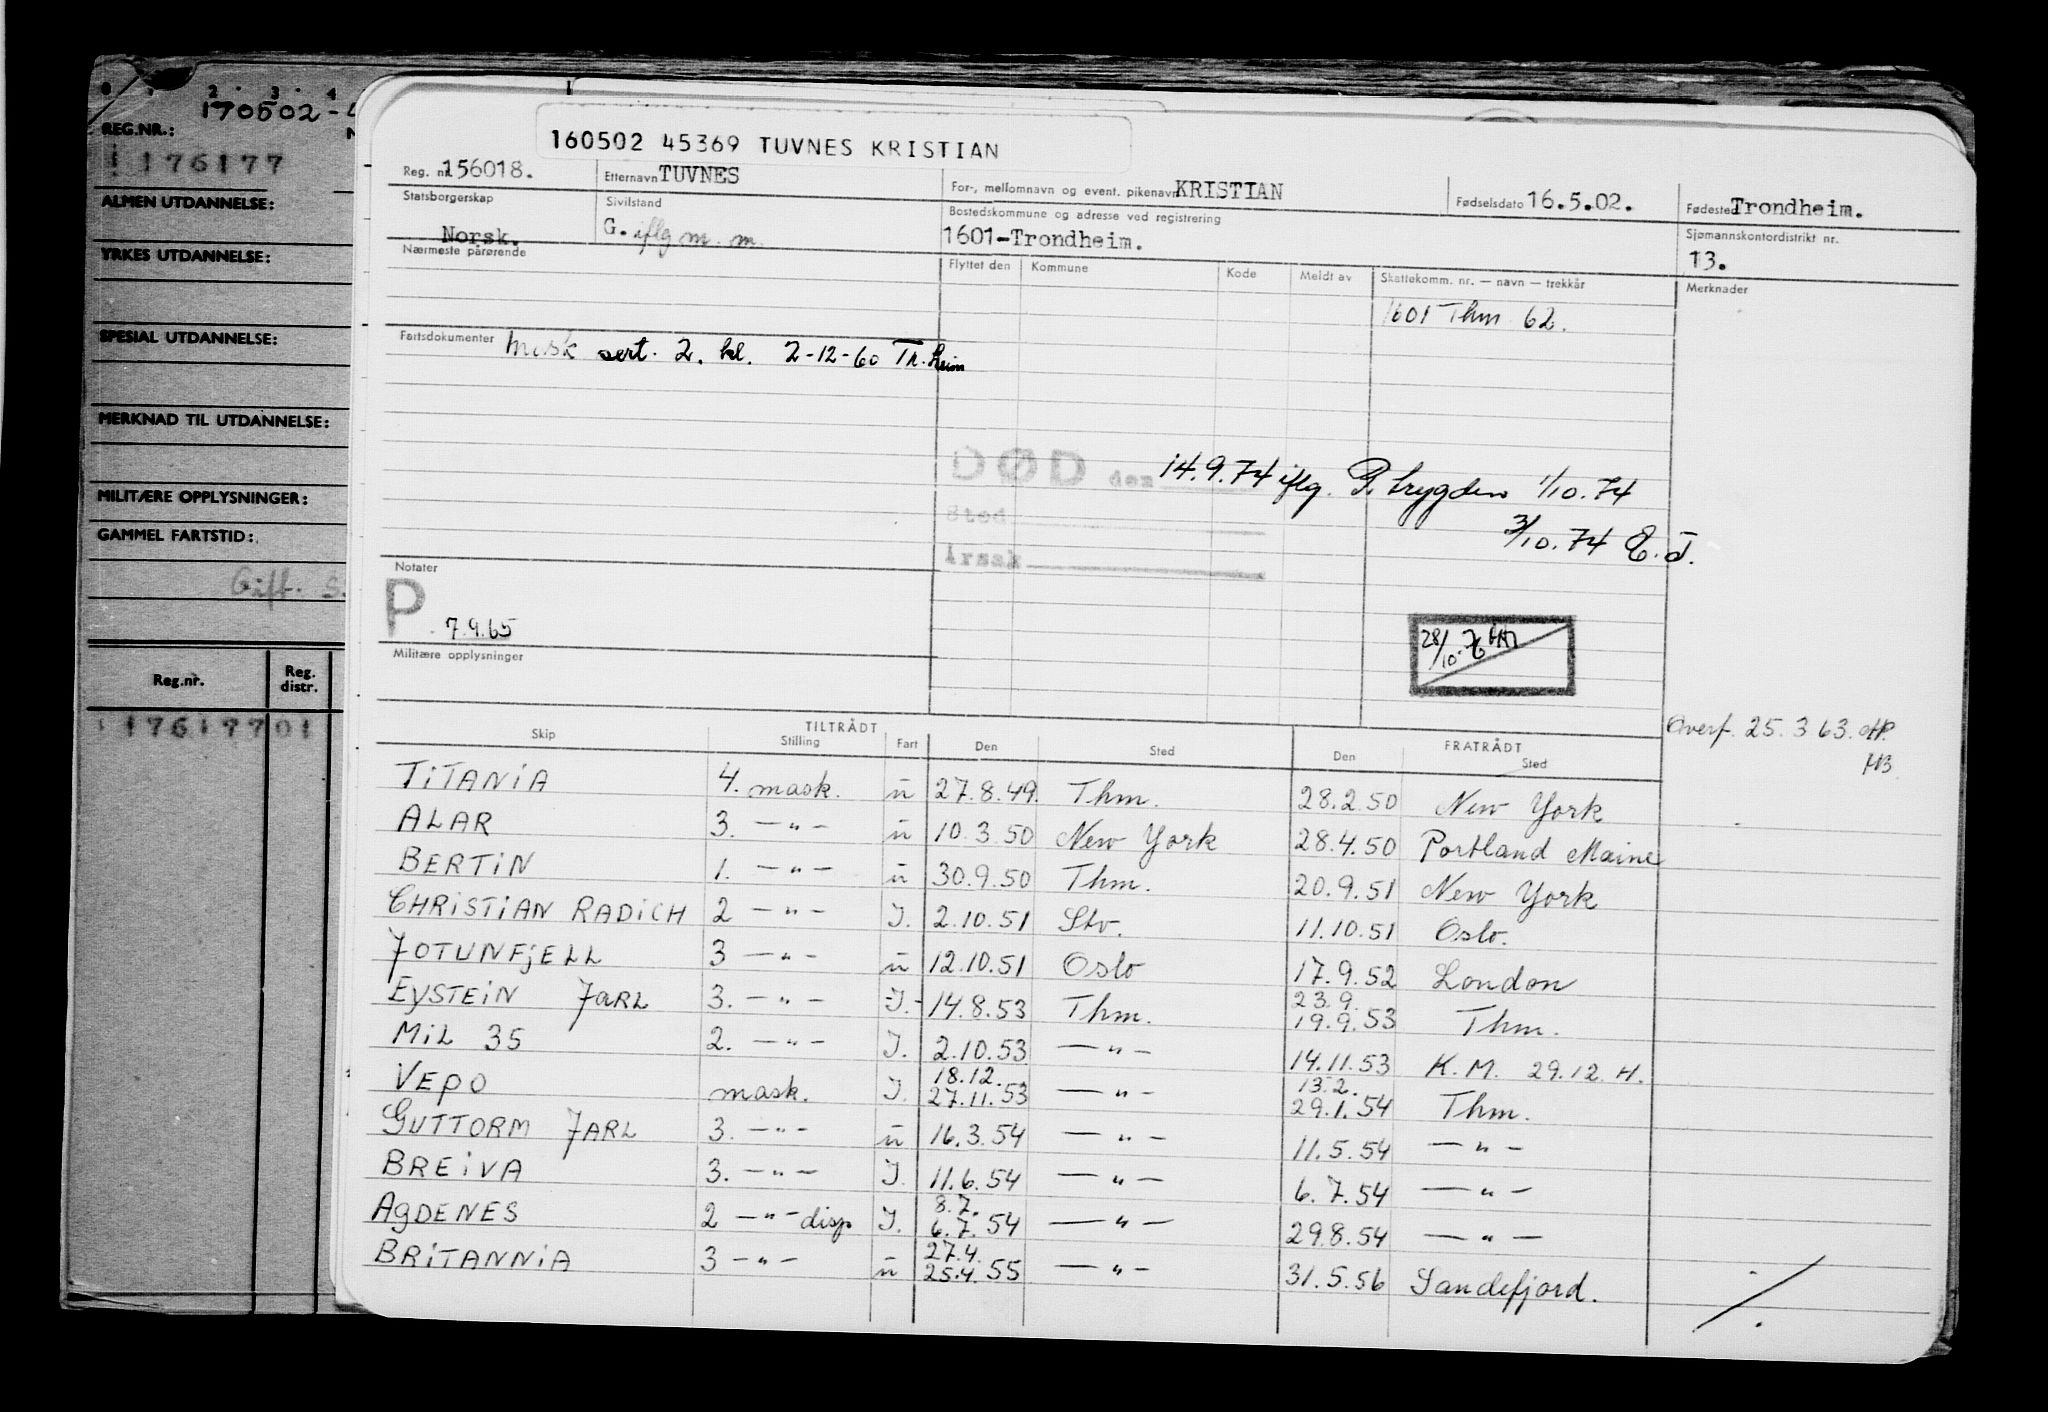 0 1 2 3 4
170502-
REG.NR.:
176177
ALMEN UTDANNELSE:
YRKES UTDANNELSE:
SPESIAL UTDANNELSE:
MERKNAD TIL UTDANNELSE:
MILITÆRE OPPLYSNINGER:
GAMMEL FARTSTID:
Gift. S.
Reg.nr. Reg. distr.
176177 01
160502 45369 TUVNES KRISTIAN
Reg. nr. 156018. Etternavn TUVNES For-, mellomnavn og event. pikenavn KRISTIAN Fødselsdato 16.5.02. Fødested Trondheim.
Statsborgerskap Sivilstand Bostedskommune og adresse ved registrering Sjømannskontordistrikt nr.
Norsk. G. iflg m.m. 1601-Trondheim. 13.
Nærmeste pårørende Flyttet den Kommune Kode Meldt av Skattekomm. nr. — navn — trekkår Merknader
1601 Thm 62.
Fartsdokumenter Mask sert. 2. kl. 2-12-60 Tr.heim
DØD den 14.9.74 iflg. P. trygden 1/10.74
Sted 3/10.74 E.J.
Årsak
Notater
P. 7.9.65
28/10-76
Militære opplysninger
Overf. 25.3 63.
TILTRÅDT FRATRÅDT
Skip Stilling Fart Den Sted Den Sted
TITANIA 4. mask. u 27.8.49. Thm. 28.2.50 New York
ALAR 3. —"— u 10.3.50 New York 28.4.50 Portland Maine
BERTIN 1. —"— u 30.9.50 Thm. 20.9.51 New York
CHRISTIAN RADICH 2 —"— J. 2.10.51 Stv. 11.10.51 Oslo.
JOTUNFJELL 3 —"— u 12.10.51 Oslo 17.9.52 London
23.9.
EYSTEIN JARL 3. —"— J.- 14.8.53 Thm. 19.9.53 Thm.
MIL 35 2. —"— J. 2.10.53 —"— 14.11.53 K.M. 29.12.H.
18.12. 13.2.
VEPO mask. J. 27.11.53 —"— 29.1.54 Thm.
GUTTORM JARL 3. —"— u 16.3.54 —"— 11.5.54 —"—
BREIVA 3. —"— J. 11.6.54 —"— 6.7.54 —"—
8.7.
AGDENES 2 —"— disp J. 6.7.54 —"— 29.8.54 —"—
27.4.
BRITANNIA 3 —"— u 25.4.55 —"— 31.5.56 Sandefjord.